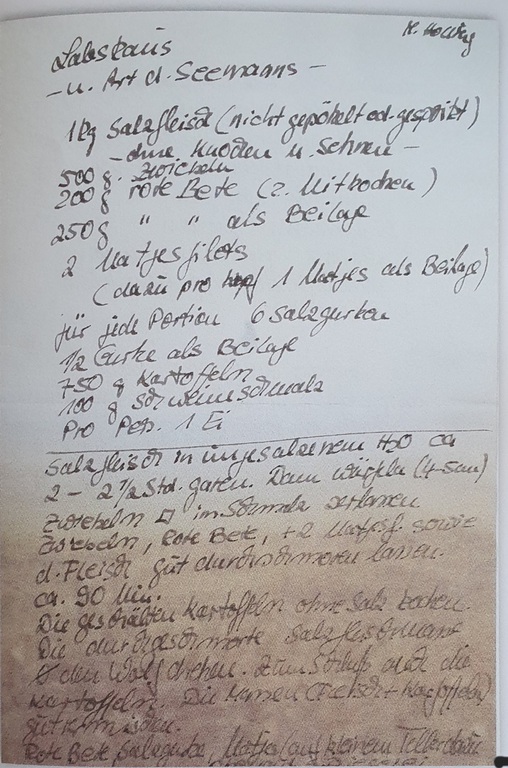 Labskaus
- n. Art d. Seemanns -
1 kg Salzfleisch (nicht gepökelt od. gespritzt)
- ohne Knochen u. Sehnen -
500 g. Zwiebeln
200 g rote Bete (z. Mitkochen)
250 g " " als Beilage
2 Matjesfilets
(dazu pro Kopf 1 Matjes als Beilage)
für jede Portion 6 Salzgurken
1/2 Gurke als Beilage
750 g Kartoffeln
100 g Schweineschmalz
Pro Pers. 1 Ei
Salzfleisch in ungesalzenem H2O ca
2 - 2 1/2 Std. garen. Dann würfeln (4-5cm)
Zwiebeln im Schmalz zerlassen.
Zwiebeln, Rote Bete, + 2 Matjesf. sowie
d. Fleisch gut durchschmoren lassen.
ca. 90 Min.
Die geschälten Kartoffeln ohne Salz kochen.
Die durchgeschmorte Salzfleischmasse
den Wolf drehen. Zum Schluß auch die
Kartoffeln. Die Massen (Fleisch + Kartoffeln)
gut vermischen.
Rote Bete Salzgurke, Matjes (auf kleinem Teller